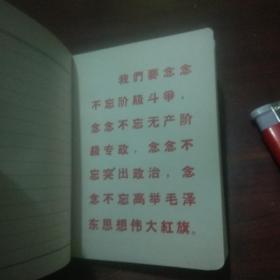 我們要念念
不忘阶級斗爭，
念念不忘无产阶
級专政，念念不
忘突出政治，念
念不忘高举毛泽
东思想伟大紅旗。